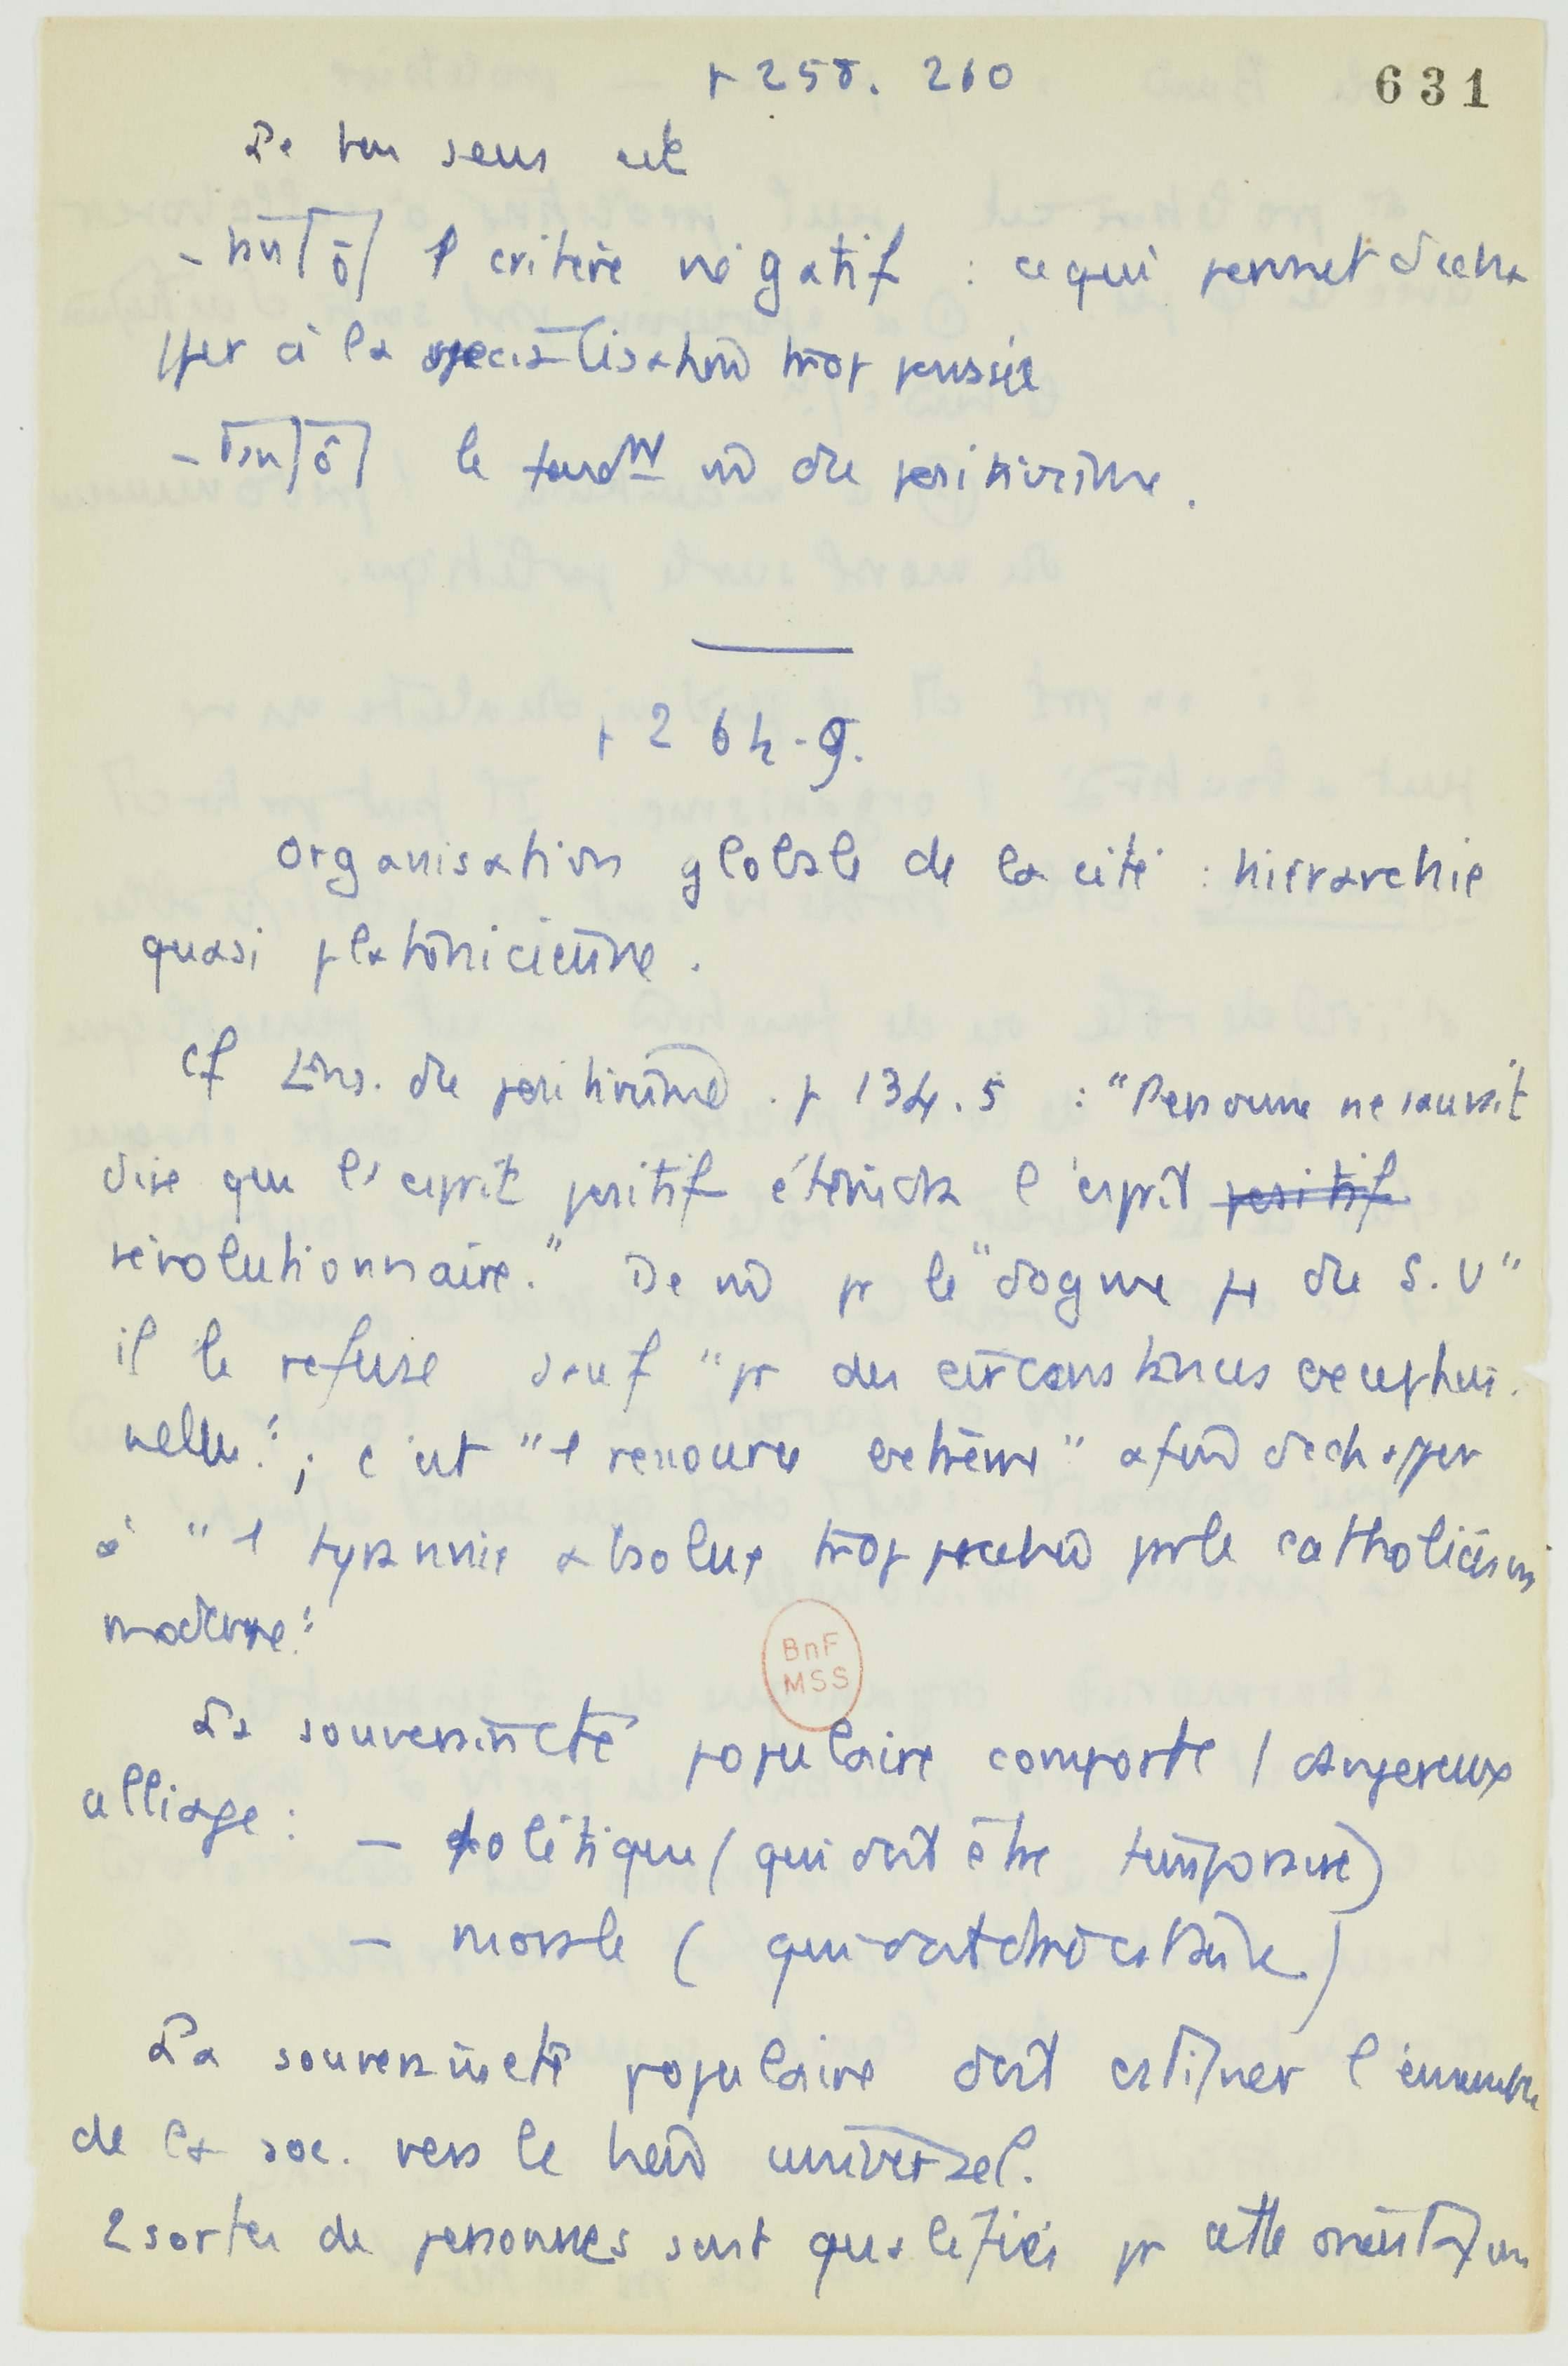 p 258. 260
631
Le bon sens est
- 1 critère négatif : ce qui permet d'echa
pper à la specialisation trop poussée
- le fondt m du positivisme.
p 264-9.
Organisation globale de la cité : hiérarchie
quasi platonicienne.
Cf Ens. du positivisme . p 134.5 : "Personne ne saurait
dire que l'esprit positif étendra l'esprit positif
révolutionnaire." De m pr le "dogme du S.U"
il le refuse sauf "pr des circonstances exception.
nelles" ; c'est "1 ressource extrême" afin d'echapper
à "1 tyrannie absolue trop par le catholicisme
moderne."
La souveraineté populaire comporte 1 dangereux
alliage :
- politique (qui doit être temporaire)
- morale (qui doit être )
La souveraineté populaire doit l'ensemble
de la soc. vers le bien universel.
2 sortes de personnes sont qualifiés pr cette orientation
BnF
MSS